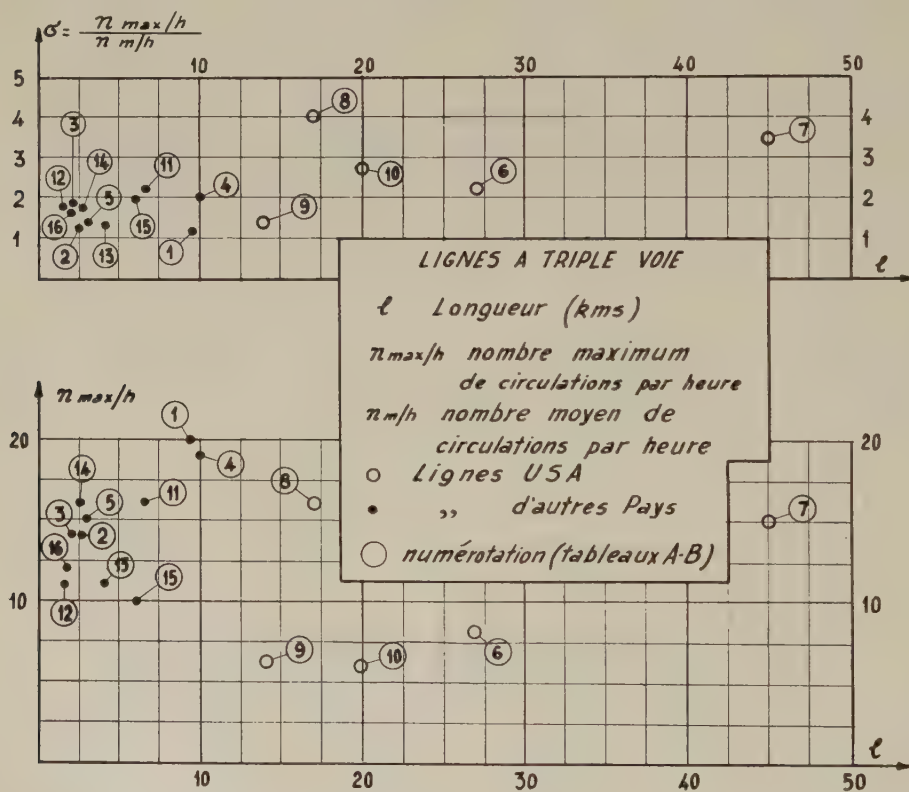 σ = n max/h / n m/h
10 20 30 40 50
5
4 4
3 3
2 2
1 1
ℓ
3 8 7
12 14 11 10 6
5 4
16 9
2 13 15 1
LIGNES A TRIPLE VOIE
ℓ Longueur (kms)
n max/h nombre maximum
de circulations par heure
n m/h nombre moyen de
circulations par heure
○ Lignes USA
• ,, d'autres Pays
○ numérotation (tableaux A-B)
n max/h
20 20
10 10
1
14 4
8
3 5 11 7
2
16 13 15
12
9 10 6
ℓ
10 20 30 40 50